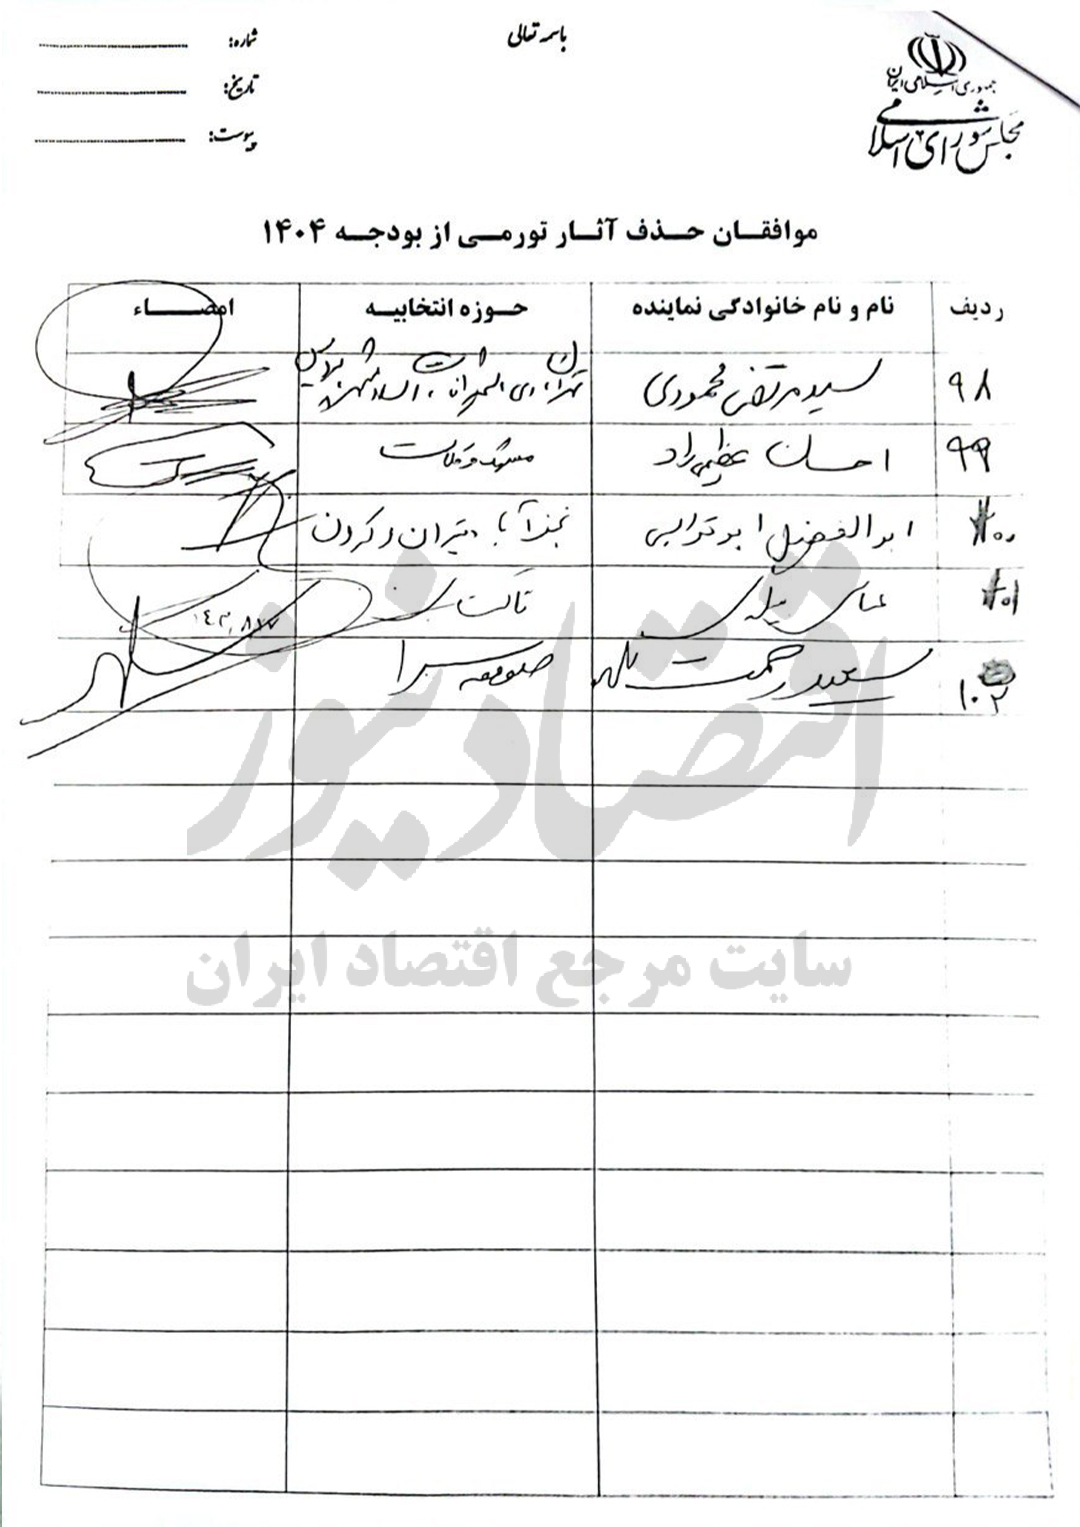 باسمه تعالی
جمهوری اسلامی ایران
مجلس شورای اسلامی
شماره:
تاریخ:
پیوست:
موافقان حذف آثار تورمی از بودجه ۱۴۰۴
ردیف نام و نام خانوادگی نماینده حوزه انتخابیه امضاء
۹۸ سید مرتضی محمودی تهران ری شمیرانات اسلامشهر پردیس
۹۹ احسان عظیمی راد
۱۰۰ ابوالفضل ابوترابی نجف آباد تیران و کرون
۱۰۱ عباس
۱۰۲ سعید رحمت صومعه سرا
اقتصادنیوز
سایت مرجع اقتصاد ایران